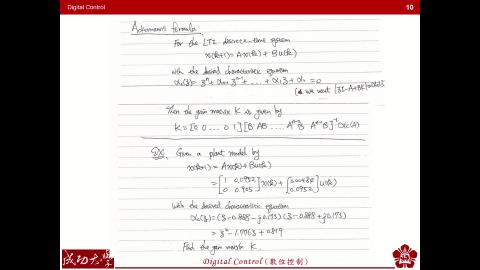 Digital Control
10
Ackermann's formula
For the LTI discrete-time system
x(k+1) = Ax(k) + Bu(k)
with the desired characteristic equation
αc(z) = zⁿ + αn-1 zⁿ⁻¹ + ... + α1 z + α0 = 0
we want |zI-A+BK| = αc(z)
Then the gain matrix K is given by
K = [0 0 ... 0 1][B AB .... Aⁿ⁻²B Aⁿ⁻¹B]⁻¹ αc(A)
EX. Given a plant model by
x(k+1) = Ax(k) + Bu(k)
= [1 0.0952; 0 0.905] x(k) + [0.00484; 0.0952] u(k)
with the desired characteristic equation
αc(z) = (z-0.888-j0.173)(z-0.888+j0.173)
= z² - 1.776z + 0.819
Find the gain matrix K.
成功大學
Digital Control (數位控制)